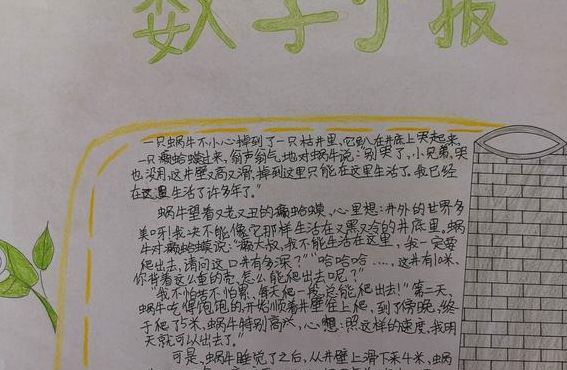 数学小报
一只蜗牛不小心掉到了一只枯井里,它趴在井底上哭起来,
一只癞蛤蟆过来,翁声翁气地对蜗牛说:“别哭了,小兄弟,哭
也没用,这井壁又高又滑,掉到这里只能在这里生活了,我已经
在这里生活了许多年了。”
蜗牛望着又老又丑的癞蛤蟆,心里想:井外的世界多
美呀!我决不能像它那样生活在又黑又冷的井底里。蜗
牛对癞蛤蟆说:“癞大叔,我不能生活在这里,我一定要
爬出去,请问这口井有多深?”“哈哈哈……,这井有10米,
你背着这么重的壳,怎么能爬出去呢?”
“我不怕苦不怕累,每天爬一段,总能爬出去!”第二天,
蜗牛吃得饱饱的,开始顺着井壁往上爬,到了傍晚,终
于爬了5米,蜗牛特别高兴,心想:照这样的速度,我明
天就可以出去了。”
可是,蜗牛睡觉了之后,从井壁上滑下来4米,蜗